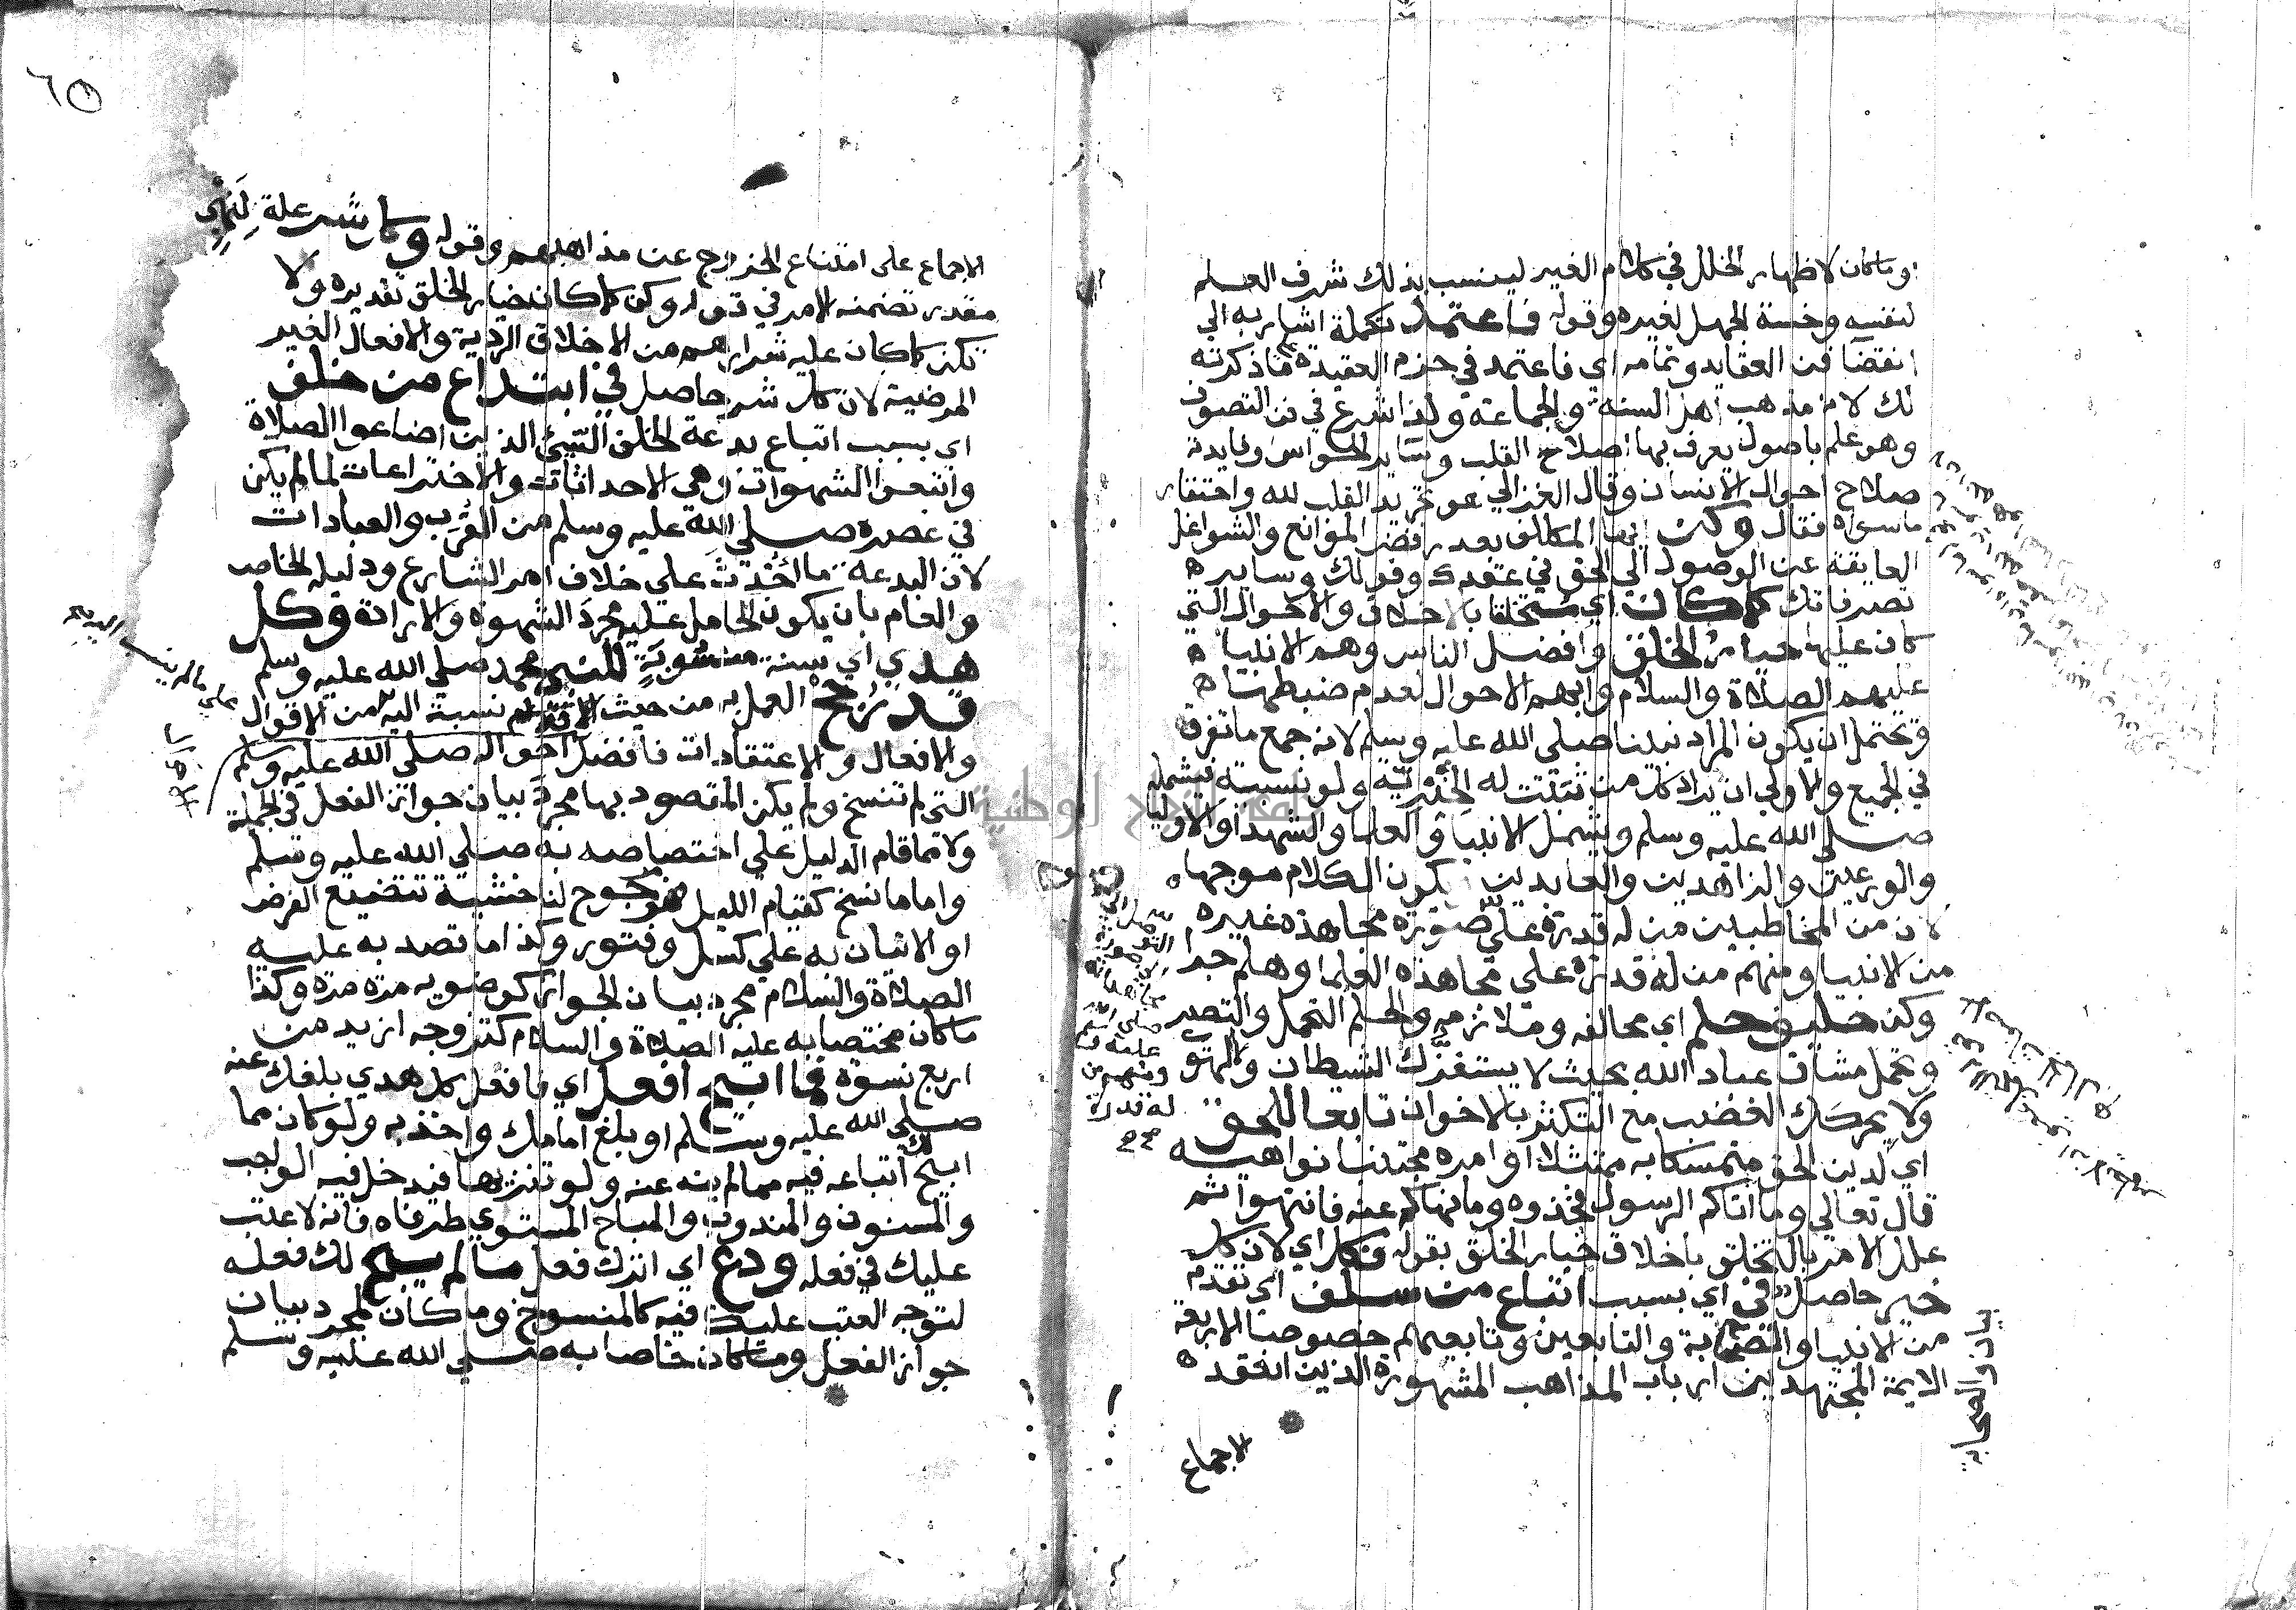 او ما كان لاظهار الخلل في كلام الغير لينسب بذلك شرف العلم
لنفسه وخسة الجهل لغيره وقوله فاعتمد تكملة اشار به الي
انقضا فن العقايد وتمامه اي فاعتمد في جزم العقيدة ما ذكرته
لك لانه مذهب اهل السنة والجماعة ولذا شرع في فن التصوف
وهو علم باصول يعرف بها اصلاح القلب وساير الحواس وفايدته
صلاح احوال الانسان وقال الغزالي هو تجريد القلب لله واحتقار
ما سواه فقال وكن ايها المكلف بعد رفض الموانع والشواغل
العايقة عن الوصول الي الحق في عقدك وقولك وساير
تصرفاتك كما كان اي متخلقا بالاخلاق والاحوال التي
كان عليها خيار الخلق وافضل الناس وهم الانبيا
عليهم الصلاة والسلام وابهم الاحوال لعدم ضبطها
وتحتمل ان يكون المراد نبينا صلي الله عليه وسلم لانه جمع ما تفرق
في الجميع والاولي ان يراد كل من ثبتت له الخيرية ولو نسبية فيشمله
صلي الله عليه وسلم ويشمل الانبيا والعلما والشهدا والاوليا
والورعين والزاهدين والعابدين ويكون الكلام موجها
لان من المخاطبين من له قدرة علي صورة مجاهذه غيره
من الانبيا ومنهم من له قدرة علي مجاهذه العلما وهلم جرا
وكن حليف حلم اي محالفه وملازمه والحلم التحمل والتصبر
وتحمل مشاق عباد الله بحيث لا يستفزك الشيطان والهوي
ولا يحركك الغضب مع التكثر بالاخوان تابعا للحق
اي لدين الحق متمسكا به ممتثلا اوامره مجتنبا نواهيه
قال تعالي وما اتاكم الرسول فخذوه وما نهاكم عنه فانتهوا ثم
علل الامر بالتخلق باخلاق خيار الخلق بقوله فكل اي لان كل
خير حاصل في اي بسبب اتباع من سلف اي تقدم
من الانبيا والصحابة والتابعين وتابعيهم خصوصا الاربعة
الايمة المجتهدين ارباب المذاهب المشهورة الذين انعقد
الاجماع
٦٥
الاجماع على امتناع الخروج عن مذاهبهم وقوله وكل شر علة لنهي
مقدر تضمنه الامر في قوله وكن كما كان خيار الخلق تقديره ولا
تكن كما كان عليه شرارهم من الاخلاق الردية والافعال الغير
المرضية لان كل شر حاصل في ابتداع من خلف
اي بسبب اتباع بدعة الخلف السيئ الذين اضاعوا الصلاة
واتبعوا الشهوات وهي الاحداثات والاختراعات لما لم يكن
في عصره صلي الله عليه وسلم من القرب والعبادات
لان البدعة ما احدث علي خلاف امر الشارع ودليله الخاص
والعام بان يكون الحامل عليه مجرد الشهوة والارادة وكل
هدي اي سنة منسوبة للنبي محمد صلي الله عليه وسلم
قد رجح العمل به من حيث نسبة اليه من الاقوال
والافعال والاعتقادات فافضل احواله صلي الله عليه وسلم
التي لم تنسخ ولم يكن المقصود بها مجرد بيان جواز الفعل في الجملة
ولا مما قام الدليل علي اختصاصه به صلي الله عليه وسلم
واما ما نسخ كقيام الليل فمرجوح لنا خشية تضييع الفرض
او الاتيان به علي كسل وفتور وكذا ما قصد به عليه
الصلاة والسلام مجرد بيان الجواز كوضويه مرة مرة وكذا
ما كان مختصا به عليه الصلاة والسلام كتزوجه ازيد من
اربع نسوة فما ابيح افعل اي فافعل كل هدي بلغك عنه
صلي الله عليه وسلم او بلغ امامك واخذ به ولو كان مما
ابيح لك اتباعه فيه مما لم ينه عنه ولو تنزيها فيدخل فيه الواجب
والمسنون والمندوب والمباح المستوي طرفاه فانه لا عتب
عليك في فعله ودع اي اترك فعل ما لم يبح لك فعله
لتوجه العتب عليك فيه كالمنسوخ وما كان لمجرد بيان
جواز الفعل وما كان خاصا به صلي الله عليه وسلم